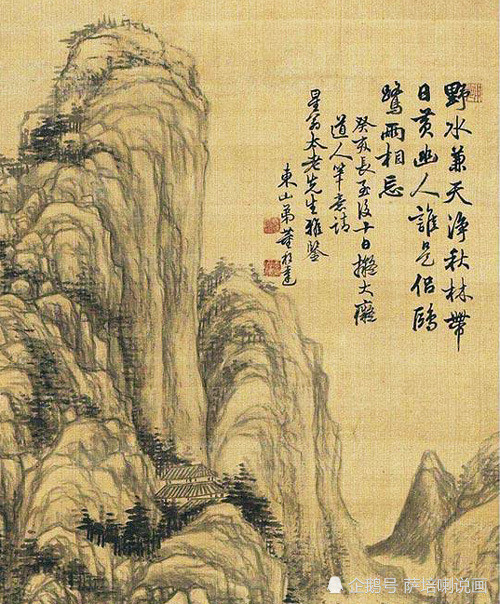 野水兼天淨秋林帶
日黃幽人誰是侶鷗
鷺兩相忘
癸亥長至後十日擬大癡
道人筆意請
星翁太老先生雅鑒
東山弟董邦達
企鹅号 萨培喇说画